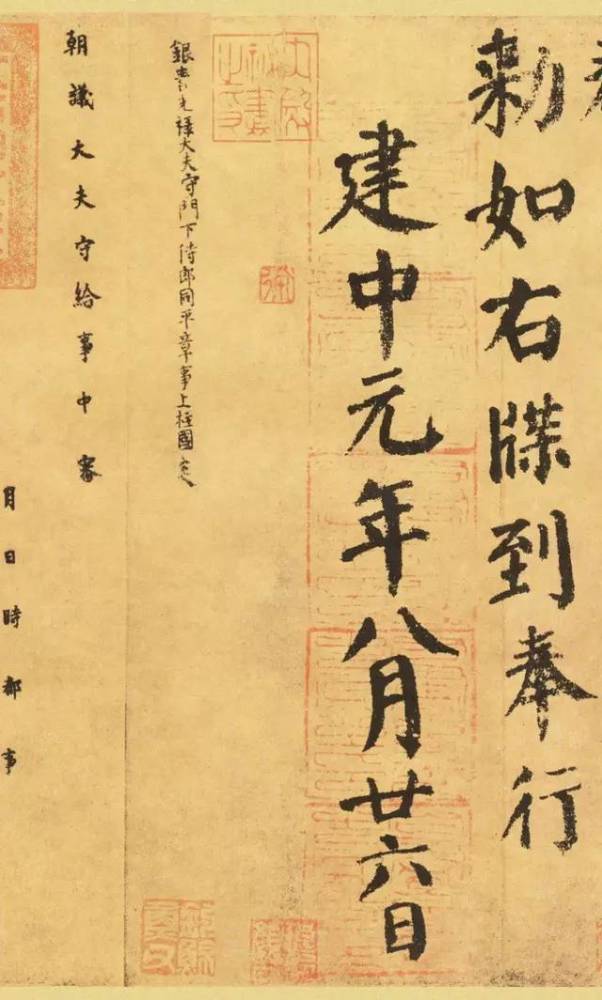 勅如右牒到奉行
建中元年八月廿六日
銀青光祿大夫守門下侍郎同平章事上柱國炎
朝議大夫守給事中審
月日時都事